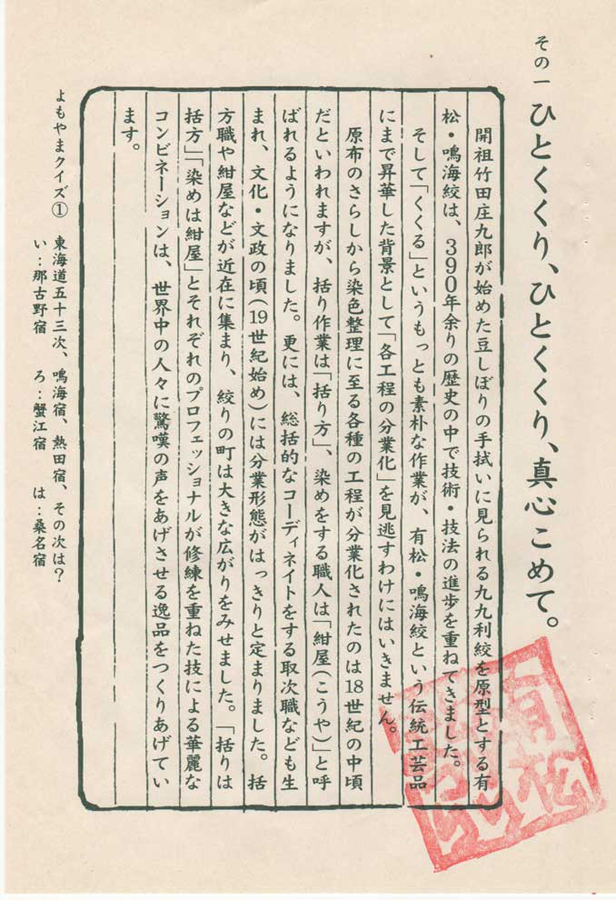 その一 ひとくくり、ひとくくり、真心こめて。
開祖竹田庄九郎が始めた豆しぼりの手拭いに見られる九九利絞を原型とする有
松・鳴海絞は、390年余りの歴史の中で技術・技法の進歩を重ねてきました。
そして「くくる」というもっとも素朴な作業が、有松・鳴海絞という伝統工芸品
にまで昇華した背景として「各工程の分業化」を見逃すわけにはいきません。
原布のさらしから染色整理に至る各種の工程が分業化されたのは18世紀の中頃
だといわれますが、括り作業は「括り方」、染めをする職人は「紺屋(こうや)」と呼
ばれるようになりました。更には、総括的なコーディネイトをする取次職なども生
まれ、文化・文政の頃(19世紀始め)には分業形態がはっきりと定まりました。括
方職や紺屋などが近在に集まり、絞りの町は大きな広がりをみせました。「括りは
括方」「染めは紺屋」とそれぞれのプロフェッショナルが修練を重ねた技による華麗な
コンビネーションは、世界中の人々に驚嘆の声をあげさせる逸品をつくりあげてい
ます。
よもやまクイズ① 東海道五十三次、鳴海宿、熱田宿、その次は?
い:那古野宿 ろ:蟹江宿 は:桑名宿
有松